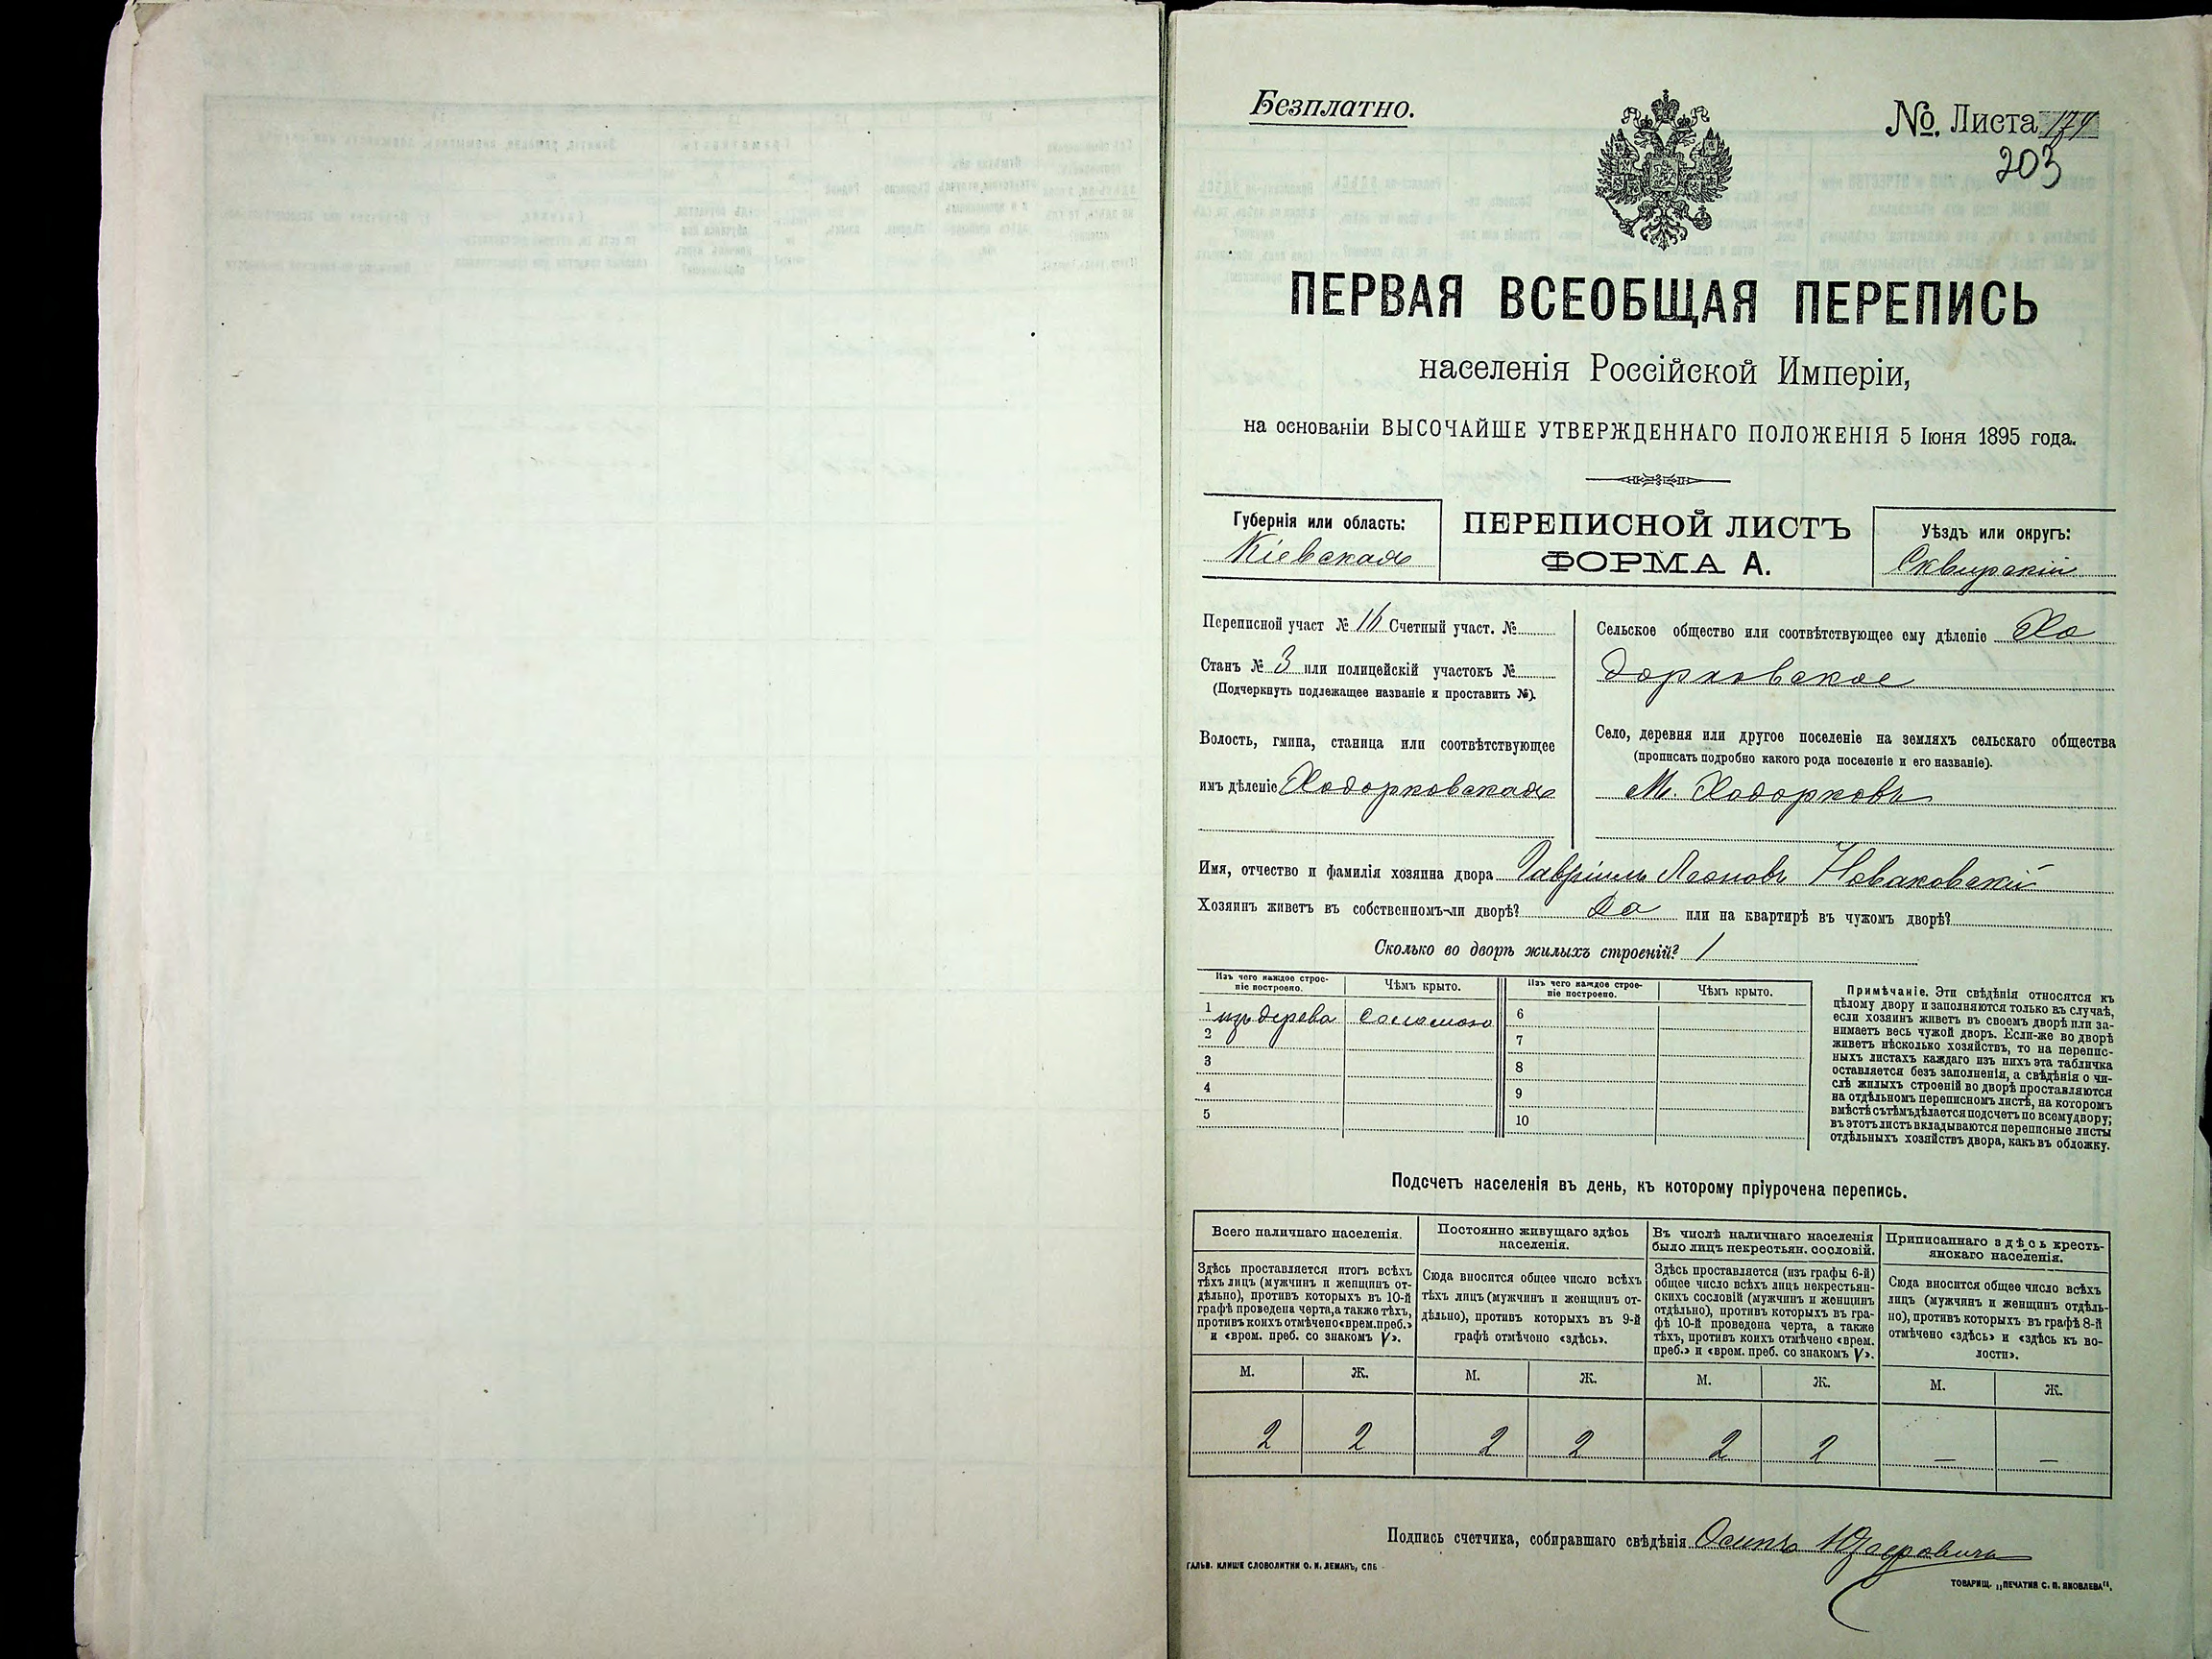 Безплатно.
№. Листа
203
ПЕРВАЯ ВСЕОБЩАЯ ПЕРЕПИСЬ
населенія Россійской Имперіи,
на основаніи ВЫСОЧАЙШЕ УТВЕРЖДЕННАГО ПОЛОЖЕНІЯ 5 Іюня 1895 года.
Губернія или область:
Кіевская
ПЕРЕПИСНОЙ ЛИСТЪ
ФОРМА А.
Уѣздъ или округъ:
Сквирскій
Переписной участ № 16 Счетный участ. №
Станъ № 3 или полицейскій участокъ №
(Подчеркнуть подлежащее названіе и проставить №).
Волость, гмина, станица или соотвѣтствующее
имъ дѣленіе Ходорковская
Сельское общество или соотвѣтствующее ему дѣленіе Хо
дорковское
Село, деревня или другое поселеніе на земляхъ сельскаго общества
(прописать подробно какого рода поселеніе и его названіе).
М. Ходорковъ
Имя, отчество и фамилія хозяина двора Гавріилъ Леоновъ Новаковскій
Хозяинъ живетъ въ собственномъ-ли дворѣ? Да или на квартирѣ въ чужомъ дворѣ?
Сколько во дворѣ жилыхъ строеній? 1
Изъ чего каждое строе-
ніе построено.
Чѣмъ крыто.
1 изъ дерева соломою
2
3
4
5
Изъ чего каждое строе-
ніе построено.
Чѣмъ крыто.
6
7
8
9
10
Примѣчаніе. Эти свѣдѣнія относятся къ
цѣлому двору и заполняются только въ случаѣ,
если хозяинъ живетъ въ своемъ дворѣ или за-
нимаетъ весь чужой дворъ. Если-же во дворѣ
живетъ нѣсколько хозяйствъ, то на перепис-
ныхъ листахъ каждаго изъ нихъ эта табличка
оставляется безъ заполненія, а свѣдѣнія о чи-
слѣ жилыхъ строеній во дворѣ проставляются
на отдѣльномъ переписномъ листѣ, на которомъ
вмѣстѣ съ тѣмъ дѣлается подсчетъ по всему двору;
въ этотъ листъ вкладываются переписные листы
отдѣльныхъ хозяйствъ двора, какъ въ обложку.
Подсчетъ населенія въ день, къ которому пріурочена перепись.
Всего наличнаго населенія.
Здѣсь проставляется итогъ всѣхъ
тѣхъ лицъ (мужчинъ и женщинъ от-
дѣльно), противъ которыхъ въ 10-й
графѣ проведена черта, а также тѣхъ,
противъ коихъ отмѣчено «врем. преб.»
и «врем. преб. со знакомъ V».
М. Ж.
2 2
Постоянно живущаго здѣсь
населенія.
Сюда вносится общее число всѣхъ
тѣхъ лицъ (мужчинъ и женщинъ от-
дѣльно), противъ которыхъ въ 9-й
графѣ отмѣчено «здѣсь».
М. Ж.
2 2
Въ числѣ наличнаго населенія
было лицъ некрестьян. сословій.
Здѣсь проставляется (изъ графы 6-й)
общее число всѣхъ лицъ некрестьян-
скихъ сословій (мужчинъ и женщинъ
отдѣльно), противъ которыхъ въ гра-
фѣ 10-й проведена черта, а также
тѣхъ, противъ коихъ отмѣчено «врем.
преб.» и «врем. преб. со знакомъ V».
М. Ж.
2 2
Приписаннаго здѣсь кресть-
янскаго населенія.
Сюда вносится общее число всѣхъ
лицъ (мужчинъ и женщинъ отдѣль-
но), противъ которыхъ въ графѣ 8-й
отмѣчено «здѣсь» и «здѣсь къ во-
лости».
М. Ж.
— —
Подпись счетчика, собиравшаго свѣдѣнія Осипъ
ГАЛЬВ. КЛИШЕ СЛОВОЛИТНИ О. И. ЛЕМАНЪ, СПБ
ТОВАРИЩ. „ПЕЧАТНЯ С. П. ЯКОВЛЕВА".